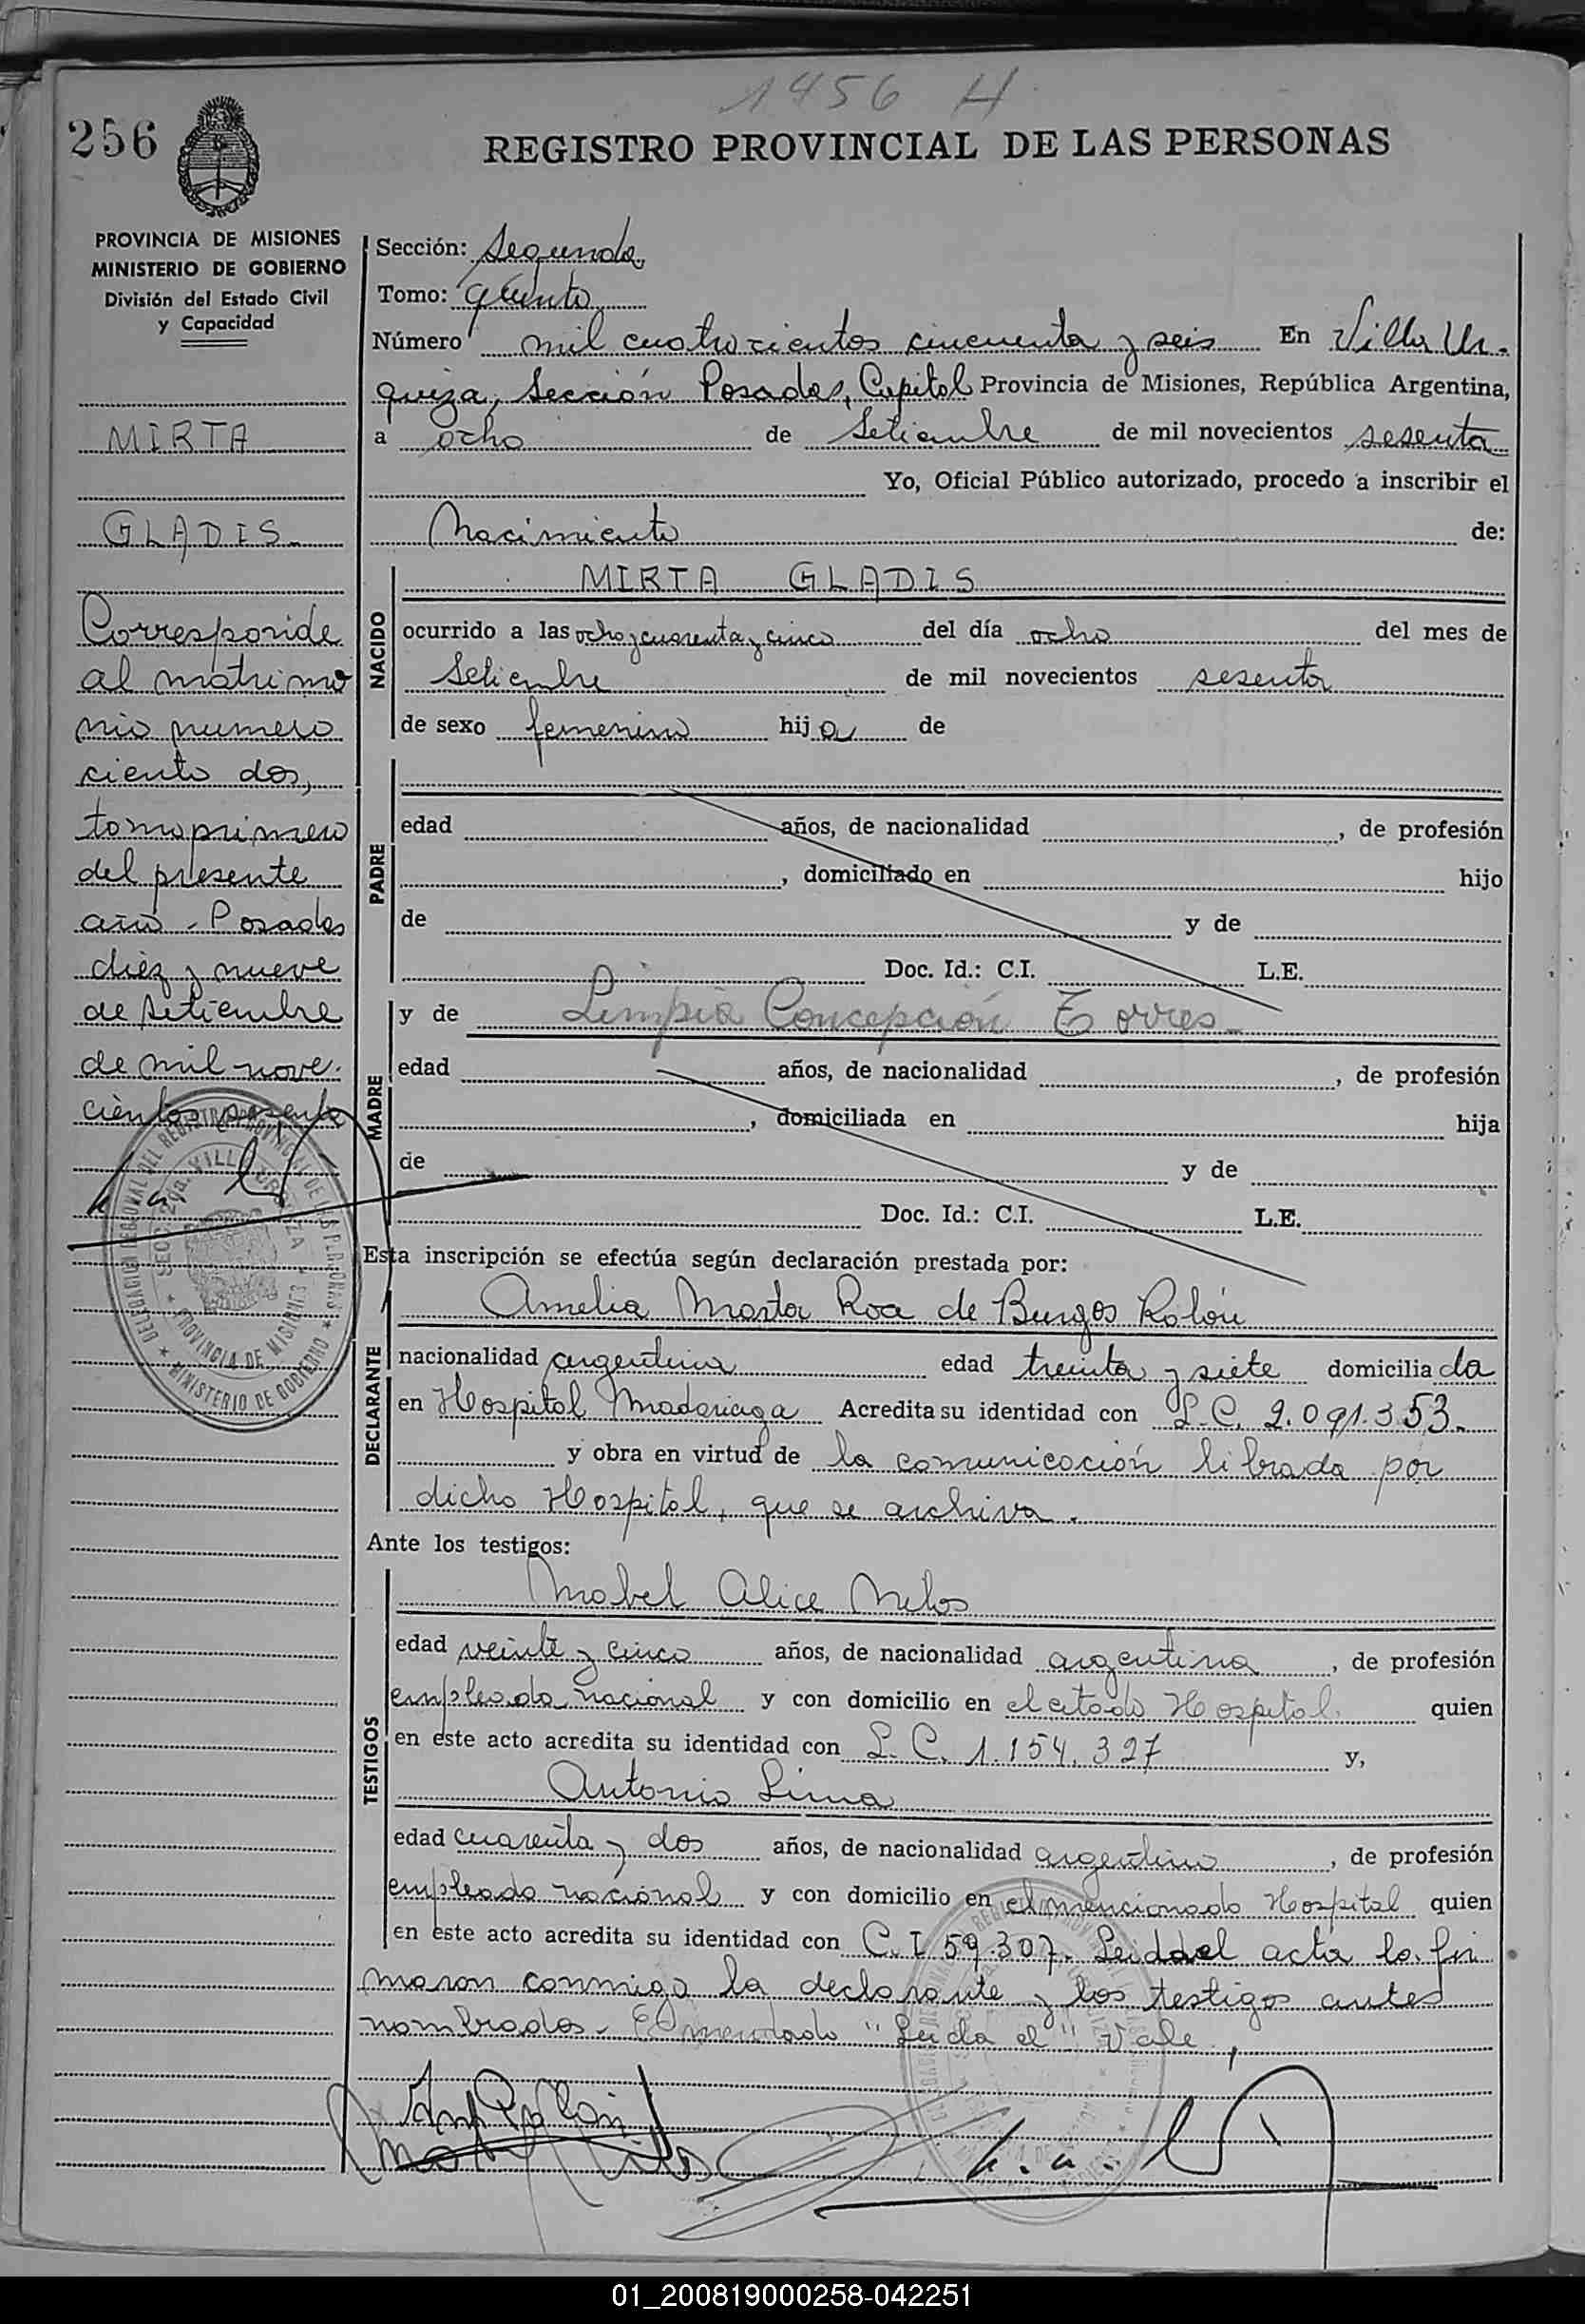 1456 H
256
REGISTRO PROVINCIAL DE LAS PERSONAS
PROVINCIA DE MISIONES
MINISTERIO DE GOBIERNO
División del Estado Civil
y Capacidad
MIRTA
GLADIS
Corresponde
al matrimo
nio numero
ciento dos,
tomo primero
del presente
año - Posadas
diez y nueve
de setiembre
de mil nove-
cientos sesenta
DELEGACION REGIONAL DEL REGISTRO PROVINCIAL DE LAS PERSONAS
SECC. 2da. VILLA URQUIZA
PROVINCIA DE MISIONES
MINISTERIO DE GOBIERNO
Sección: Segunda
Tomo: quinto
Número mil cuatrocientos cincuenta y seis En Villa Ur-
quiza, Sección Posadas, Capital Provincia de Misiones, República Argentina,
a ocho de Setiembre de mil novecientos sesenta
Yo, Oficial Público autorizado, procedo a inscribir el
Nacimiento de:
NACIDO
MIRTA GLADIS
ocurrido a las ocho y cuarenta y cinco del día ocho del mes de
Setiembre de mil novecientos sesenta
de sexo femenino hija de
PADRE
edad años, de nacionalidad , de profesión
, domiciliado en hijo
de y de
Doc. Id.: C.I. L.E.
MADRE
y de Limpia Concepción Torres
edad años, de nacionalidad , de profesión
, domiciliada en hija
de y de
Doc. Id.: C.I. L.E.
Esta inscripción se efectúa según declaración prestada por:
DECLARANTE
Amelia Marta Roa de Burgos Rolón
nacionalidad argentina edad treinta y siete domiciliada
en Hospital Madariaga Acredita su identidad con L.C. 2.091.353.
y obra en virtud de la comunicación librada por
dicho Hospital, que se archiva.
Ante los testigos:
TESTIGOS
Mabel Alice
edad veinte y cinco años, de nacionalidad argentina, de profesión
empleada nacional y con domicilio en el citado Hospital quien
en este acto acredita su identidad con L.C. 1.154.327 y,
Antonio Lima
edad cuarenta y dos años, de nacionalidad argentino, de profesión
empleado nacional y con domicilio en el mencionado Hospital quien
en este acto acredita su identidad con C.I 59.307. Leida el acta la fir
maron conmigo la declarante y los testigos antes
nombrados - Enmendado "Leida el" Vale
01_200819000258-042251